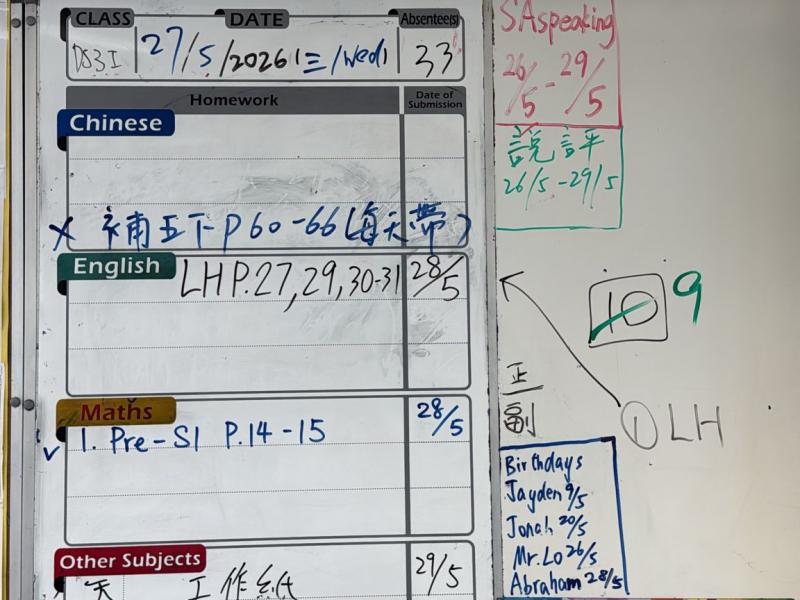 CLASS DATE Absentee(s)
27/5/2026(三)/Wed) 33
Homework Date of Submission
Chinese
x 補五下P60-66(每天帶)
English
LH P.27,29,30-31 28/5
Maths
1. Pre-S1 P.14-15 28/5
Other Subjects
工作紙 29/5
SA speaking
26/5 - 29/5
說話評
26/5-29/5
10 9
正
副
① LH
Birthdays
Jayden 9/5
Jonah 20/5
Mr. Lo 26/5
Abraham 28/5